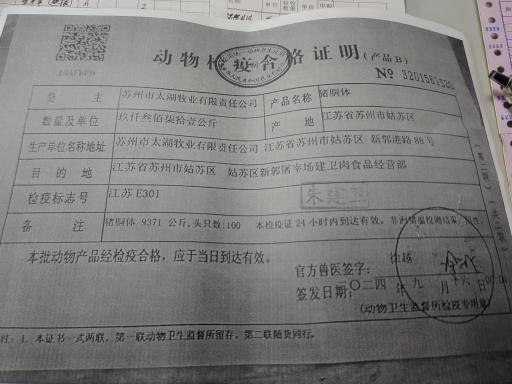 动物检疫合格证明(产品B)
疫合
№ 3201561520
货 主 苏州市太湖牧业有限责任公司 产品名称 猪胴体
数量及单位 玖仟叁佰柒拾壹公斤 产 地 江苏省苏州市姑苏区
生产单位名称地址 苏州市太湖牧业有限责任公司 江苏省苏州市姑苏区 新郭港路88号
目 的 地 江苏省苏州市姑苏区 姑苏区新郭屠宰场建卫肉食品经营部
检疫标志号 江苏E301
朱建卫
备 注 猪胴体 9371 公斤,头只数:100 本检疫证24小时内到达有效。非洲猪瘟检测结果:阴性
本批动物产品经检疫合格,应于当日到达有效。
官方兽医签字:
签发日期: 二四 年 九 月 十六
(动物卫生监督所检疫专用章)
注:1. 本证书一式两联,第一联动物卫生监督所留存,第二联随货同行。